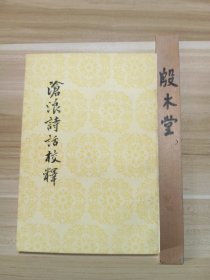 滄浪詩話校釋
殷木堂